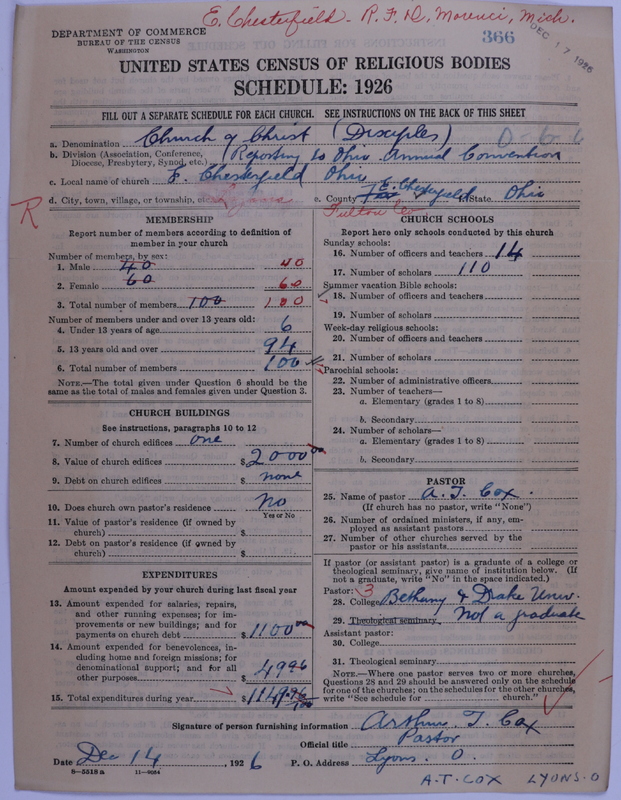 E. Chesterfield - R.F.D., Morenci, Mich.
DEPARTMENT OF COMMERCE
BUREAU OF THE CENSUS
WASHINGTON
366
DEC 17 1926
UNITED STATES CENSUS OF RELIGIOUS BODIES
SCHEDULE: 1926
FILL OUT A SEPARATE SCHEDULE FOR EACH CHURCH. SEE INSTRUCTIONS ON THE BACK OF THIS SHEET
a. Denomination Church of Christ (Disciples)
b. Division (Association, Conference, Diocese, Presbytery, Synod, etc.) (Reporting to Ohio Annual Convention
c. Local name of church E. Chesterfield Ohio
d. City, town, village, or township, etc. Lyons e. County E. Chesterfield f. State Ohio
R
Fulton Co
MEMBERSHIP
Report number of members according to definition of member in your church
Number of members, by sex:
1. Male 40 40
2. Female 60 60
3. Total number of members 100 100
Number of members under and over 13 years old:
4. Under 13 years of age 6
5. 13 years old and over 94
6. Total number of members 100
NOTE.—The total given under Question 6 should be the same as the total of males and females given under Question 3.
CHURCH BUILDINGS
See instructions, paragraphs 10 to 12
7. Number of church edifices one
8. Value of church edifices $ 2000 00
9. Debt on church edifices $ none
10. Does church own pastor's residence No
Yes or No
11. Value of pastor's residence (if owned by church) $
12. Debt on pastor's residence (if owned by church) $
EXPENDITURES
Amount expended by your church during last fiscal year
13. Amount expended for salaries, repairs, and other running expenses; for improvements or new buildings; and for payments on church debt $ 1100 00
14. Amount expended for benevolences, including home and foreign missions; for denominational support; and for all other purposes $ 49 96
15. Total expenditures during year $ 1149.96
CHURCH SCHOOLS
Report here only schools conducted by this church
Sunday schools:
16. Number of officers and teachers 14
17. Number of scholars 110
Summer vacation Bible schools:
18. Number of officers and teachers
19. Number of scholars
Week-day religious schools:
20. Number of officers and teachers
21. Number of scholars
Parochial schools:
22. Number of administrative officers
23. Number of teachers—
a. Elementary (grades 1 to 8)
b. Secondary
24. Number of scholars—
a. Elementary (grades 1 to 8)
b. Secondary
PASTOR
25. Name of pastor A. T. Cox.
(If church has no pastor, write "None")
26. Number of ordained ministers, if any, employed as assistant pastors
27. Number of other churches served by the pastor or his assistants
If pastor (or assistant pastor) is a graduate of a college or theological seminary, give name of institution below. (If not a graduate, write "No" in the space indicated.)
Pastor: 3
28. College Bethany & Drake Univ.
29. Theological seminary Not a graduate
Assistant pastor:
30. College
31. Theological seminary
NOTE.—Where one pastor serves two or more churches, Questions 28 and 29 should be answered only on the schedule for one of the churches; on the schedules for the other churches, write "See schedule for church."
Signature of person furnishing information Arthur T. Cox
Official title Pastor
Date Dec 14, 1926 P. O. Address Lyons. O.
8—5518 a 11—9064
A.T. COX LYONS-O